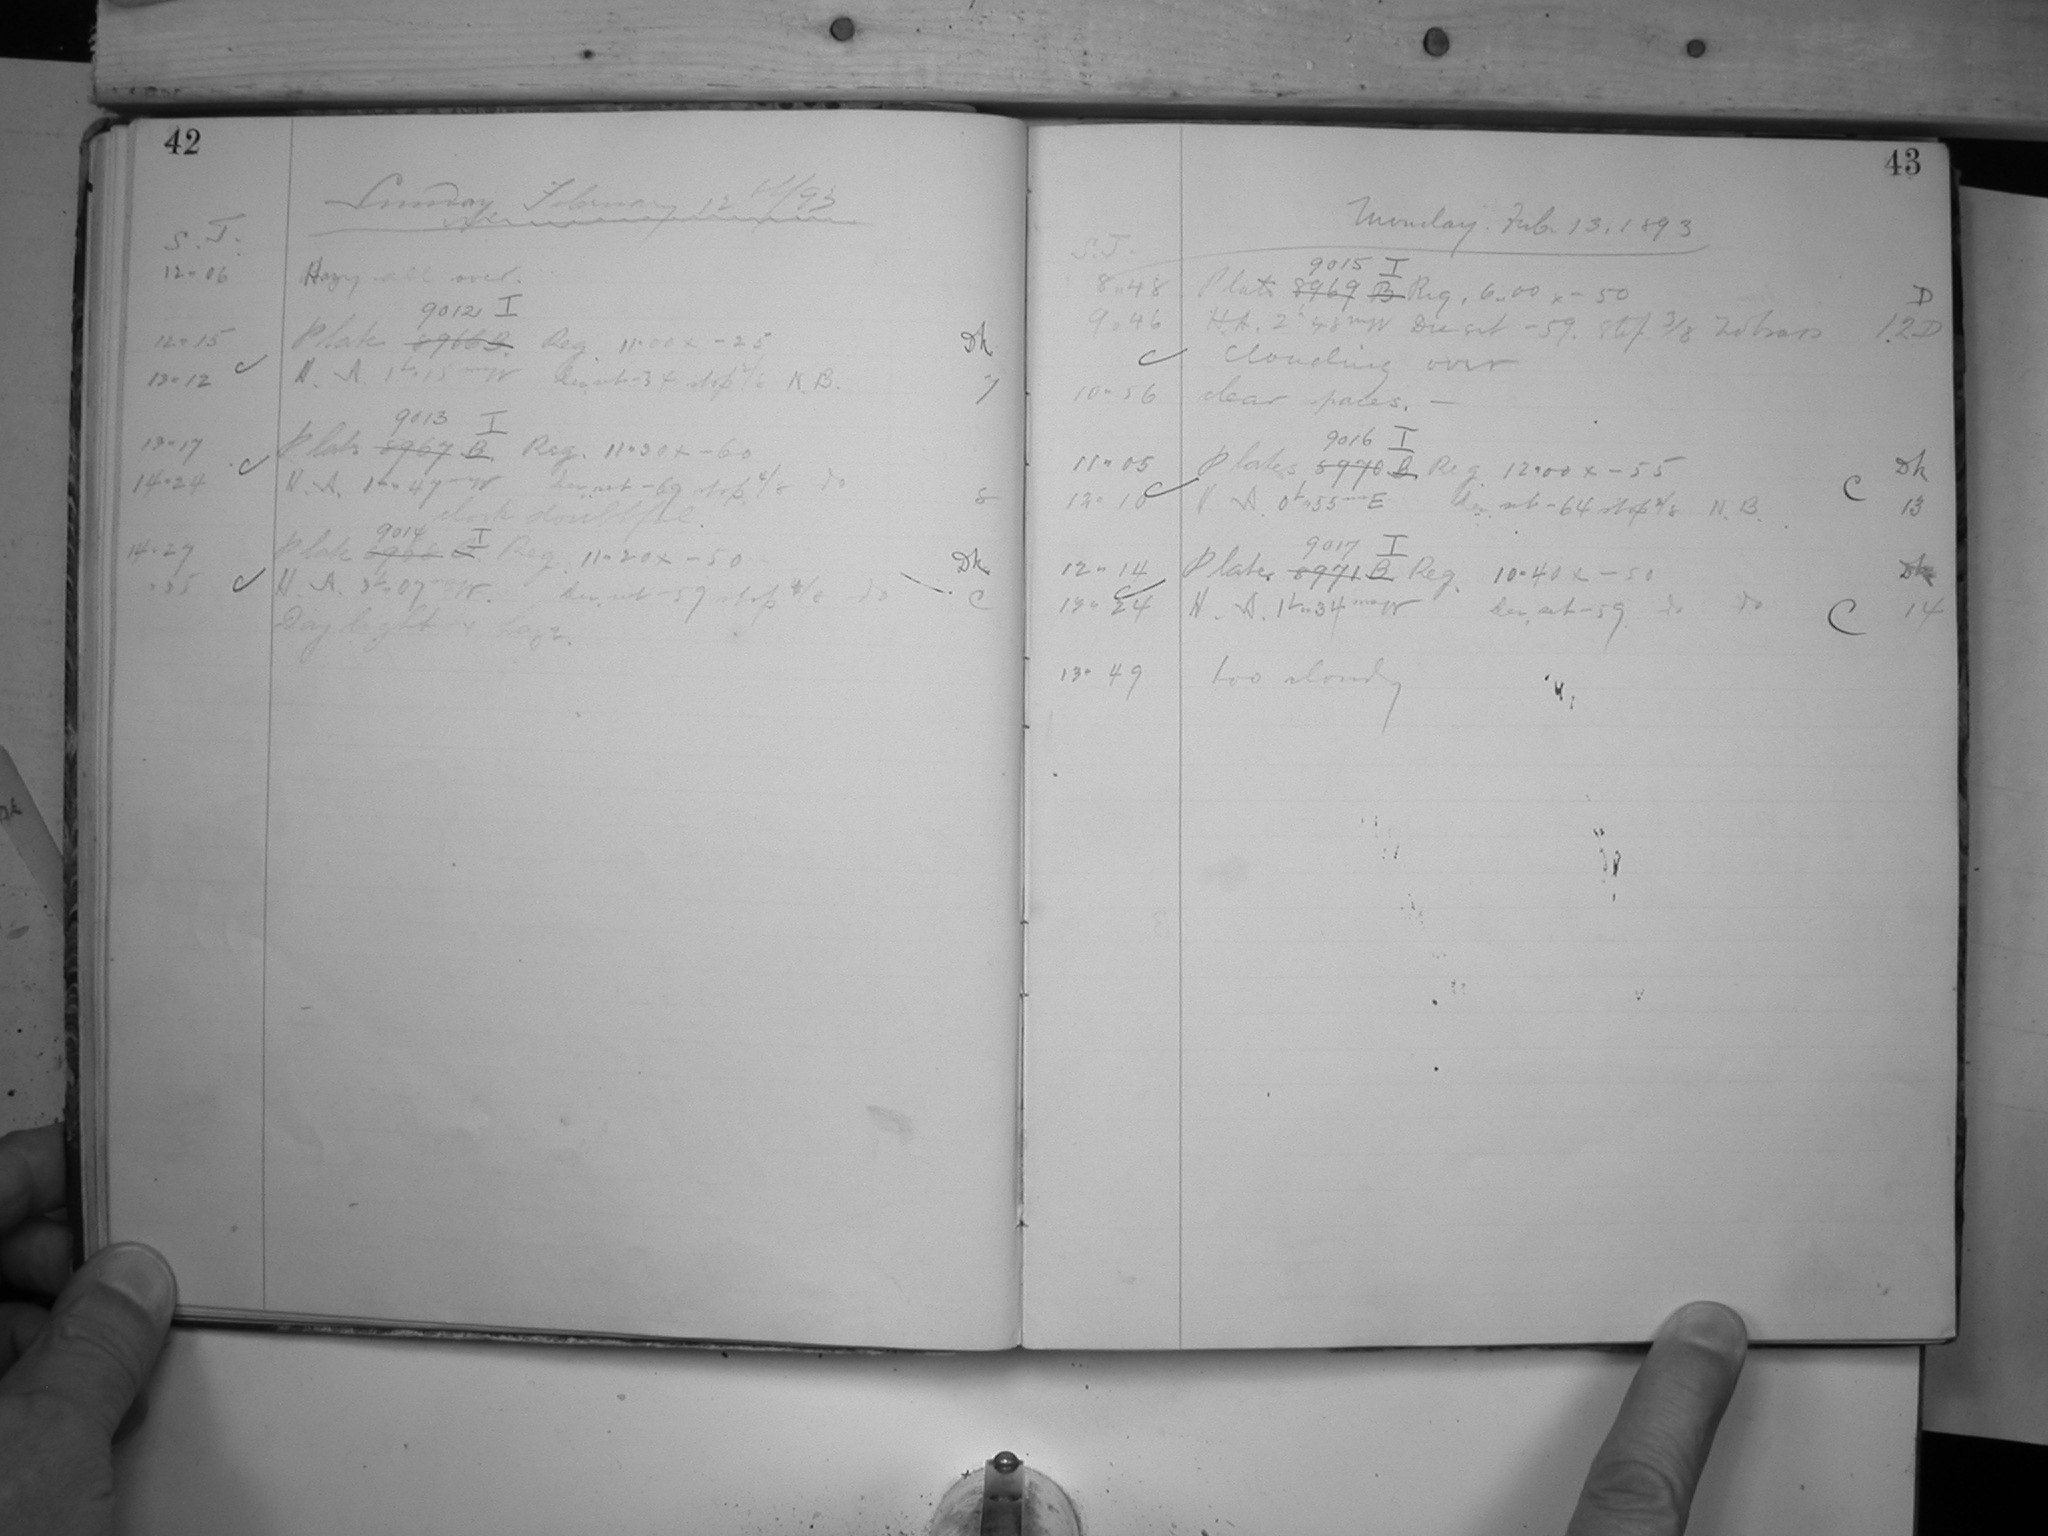 42
Sunday February 12th/93
S. T.
12 06 Hazy all over.
9012 I
12 15 Plate 8966 B Reg. 11 00 x -25 Dk
13 12 H. A. 1h 15m W Dec. set -34 stop /8 N. B. 7
9013 I
13 17 Plate 8967 B Reg. 11 30 x -60
14 24 H. A. 1h 47m W Dec. set -69 stop /8 do 8
clock doubtful.
9014 I
14 27 Plate 8968 B Reg. 11 20 x -50 Dk
35 H. A. 3h 07m W. Dec. set -59 stop /8 do C
Day light & haze.
43
Monday. Feb. 13, 1893
S. T.
9015 I
8 48 Plate 8969 B Reg. 6 00 x -50 D
9 46 H. A. 2h 48m W Dec set -59. Stop 3/8 12 D
Clouding over
10 56 clear spaces. —
9016 I
11 05 Plates 8970 B Reg 12 00 x -55 Dk
12 10 H. A. 0h 55m E Dec. set -64 stop /8 N. B. C 13
9017 I
12 14 Plate. 8971 B Reg. 10 40 x -50 Dk
13 24 H. A. 1h 34m W Dec. set -59 do do C 14
13 49 too cloudy